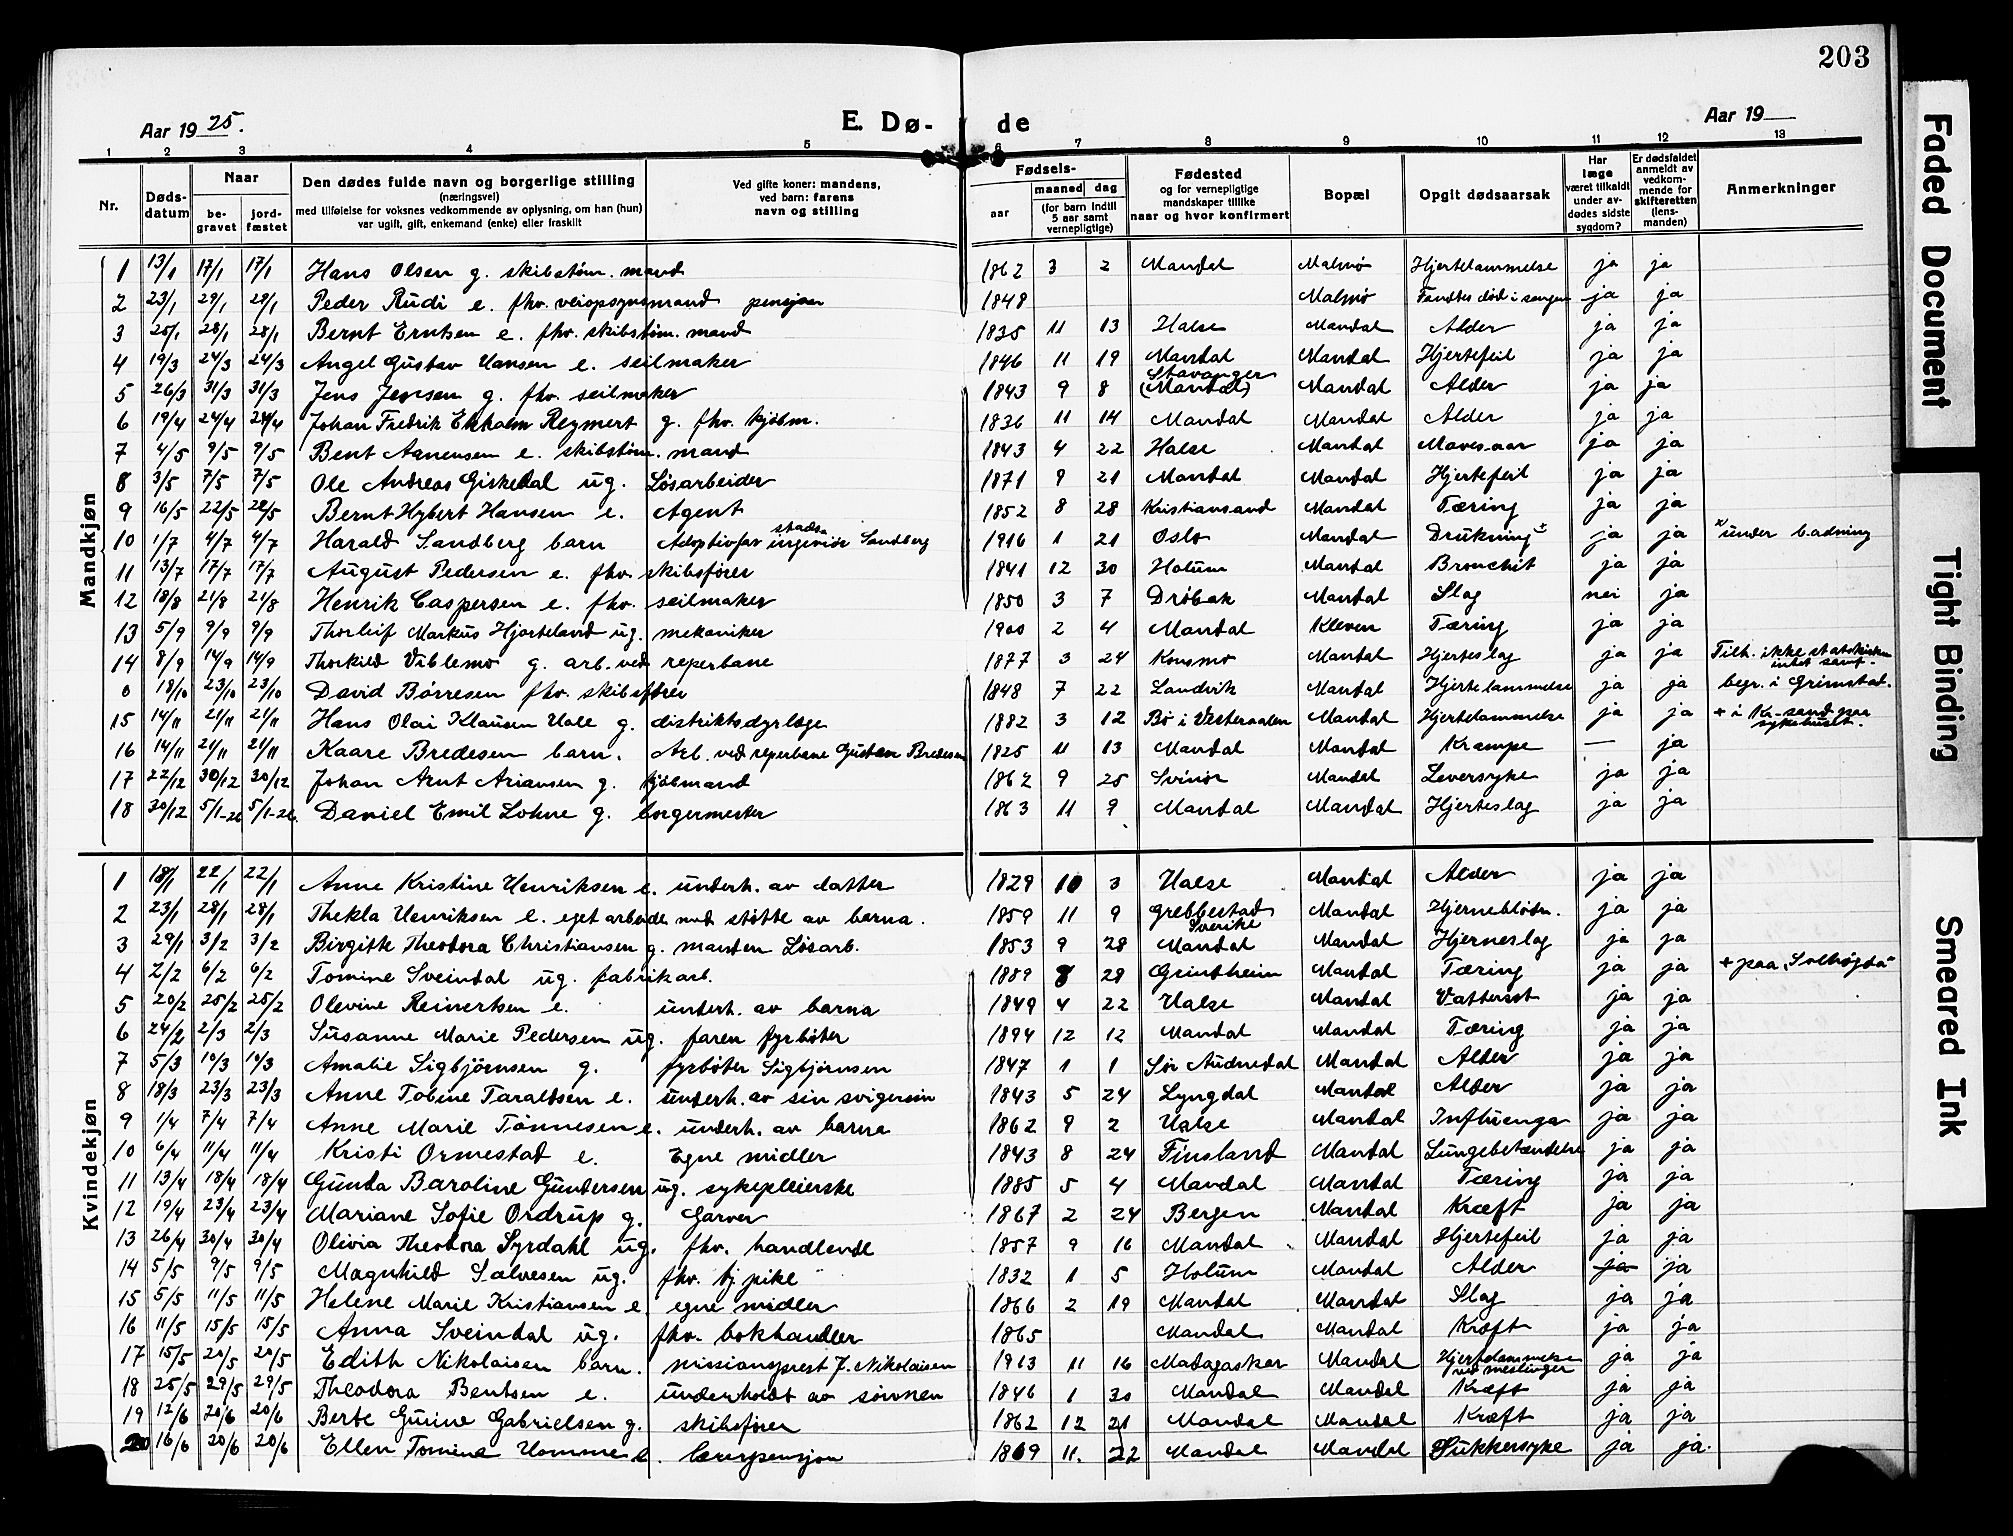 203
Aar 19 25.
E. Dø-
de
Aar 19
1 2 3 4 5 6 7 8 9 10 11 12 13
Nr.
Døds-
datum
Naar
be-
gravet
jord-
fæstet
Den dødes fulde navn og borgerlige stilling
(næringsvei)
med tilføielse for voksnes vedkommende av oplysning, om han (hun)
var ugift, gift, enkemand (enke) eller fraskilt
Ved gifte koner: mandens,
ved barn: farens
navn og stilling
Fødsels-
aar
maaned dag
(for barn indtil
5 aar samt
vernepligtige)
Fødested
og for vernepligtige
mandskaper tillike
naar og hvor konfirmert
Bopæl
Opgit dødsaarsak
Har
læge
været tilkaldt
under av-
dødes sidste
sygdom?
Er dødsfaldet
anmeldt av
vedkom-
mende for
skifteretten
(lens-
manden)
Anmerkninger
Mandkjøn
1 13/1 17/1 17/1 Hans Olsen g. skibstøm. mand 1862 3 2 Mandal Malmø Hjertelammelse ja ja
2 23/1 29/1 29/1 Peder Rudi e. fhv. veiopsynsmand pensjon 1848 Malmø Fandtes død i sengen ja ja
3 25/1 28/1 28/1 Bernt Erntsen e. fhv. skibstøm. mand 1835 11 13 Halse Mandal Alder ja ja
4 19/3 24/3 24/3 Angel Gustav Hansen e. seilmaker 1846 11 19 Mandal Mandal Hjertefeil ja ja
5 26/3 31/3 31/3 Jens Jensen g. fhv. seilmaker 1843 9 8 Stavanger (Mandal) Mandal Alder ja ja
6 19/4 24/4 24/4 Johan Fredrik Ekholm Reymert g. fhv. kjøbm. 1836 11 14 Mandal Mandal Alder ja ja
7 4/5 9/5 9/5 Bent Aanensen e. skibstøm. mand 1843 4 22 Halse Mandal Mavesaar ja ja
8 3/5 7/5 7/5 Ole Andreas Giskedal ug. Løsarbeider 1871 9 21 Mandal Mandal Hjertefeil ja ja
9 16/5 22/5 22/5 Bernt Hybert Hansen e. Agent 1852 8 28 Kristiansand Mandal Tæring ja ja
10 1/7 4/7 4/7 Harald Sandberg barn Adoptivfar stads ingeniør Sandberg 1916 1 21 Oslo Mandal Drukning + ja ja x under badning
11 13/7 17/7 17/7 August Pedersen e. fhv. skibsfører 1841 12 30 Holum Mandal Bronchit ja ja
12 18/8 21/8 21/8 Henrik Caspersen e. fhv. seilmaker 1850 3 7 Drøbak Mandal Slag nei ja
13 5/9 9/9 9/9 Thorleif Markus Hjorteland ug. mekaniker 1900 2 4 Mandal Kleven Tæring ja ja
14 8/9 14/9 14/9 Thorkild Viblemo g. arb. ved reperbane 1877 3 24 Konsmo Mandal Hjerteslag ja ja Tilh. ikke statskirken intet samf.
0 18/10 23/10 23/10 David Børresen fhv. skibsfører 1848 7 22 Landvik Mandal Hjertelammelse ja ja begr. i Grimstad.
15 14/11 21/11 21/11 Hans Olai Klausen Uole g. distriktsdyrlæge 1882 3 12 Bø i Vesteraalen Mandal Hjertelammelse ja ja + i Kr-sand paa sykehuset.
16 14/11 21/11 21/11 Kaare Bredesen barn. Arb. ved reperbane Gustav Bredesen 1825 11 13 Mandal Mandal Krampe — ja
17 22/12 30/12 30/12 Johan Arnt Ariansen g. kjøbmand 1862 9 25 Svinør Mandal Leversyke ja ja
18 30/12 5/1-26 5/1-26. Daniel Emil Lohne g. borgermester 1863 11 9 Mandal Mandal Hjerteslag ja ja
Kvindekjøn
1 18/1 22/1 22/1 Anne Kristine Henriksen e. underh. av datter 1829 10 3 Halse Mandal Alder ja ja
2 23/1 28/1 28/1 Thekla Henriksen e. eget arbeide med støtte av barna. 1859 11 9 Grebbestad Sverike Mandal Hjernebløtn. ja ja
3 29/1 3/2 3/2 Birgitte Theodora Christiansen g. manden Løsarb. 1853 9 28 Mandal Mandal Hjerneslag ja ja
4 2/2 6/2 6/2 Tomine Sveindal ug. fabrikarb. 1889 8 28 Grindheim Mandal Tæring ja ja + paa "Solhøgda"
5 20/2 25/2 25/2 Olevine Reinertsen e. underh. av barna 1849 4 22 Halse Mandal Vattersot ja ja
6 24/2 2/3 2/3 Susanne Marie Pedersen ug. faren fyrbøter 1894 12 12 Mandal Mandal Tæring ja ja
7 5/3 10/3 10/3 Amalie Sigbjørnsen g. fyrbøter Sigbjørnsen 1847 1 1 Sør Audnedal Mandal Alder ja ja
8 18/3 23/3 23/3 Anne Tobine Taraldsen e. underh. av sin svigersøn 1843 5 24 Lyngdal Mandal Alder ja ja
9 1/4 7/4 7/4 Anne Marie Tønnesen e. underh. av barna 1862 9 2 Halse Mandal Influenza ja ja
10 6/4 11/4 11/4 Kristi Ormestad e. Egne midler 1843 8 24 Finsland Mandal Lungebetændelse ja ja
11 13/4 18/4 18/4 Gunda Baroline Gundersen ug. sykepleierske 1885 5 4 Mandal Mandal Tæring ja ja
12 19/4 23/4 23/4 Mariane Sofie Ordrup g. Garver 1867 2 24 Bergen Mandal Kræft ja ja
13 26/4 30/4 30/4 Olivia Theodora Syrdahl ug. fhv. handlende 1857 9 16 Mandal Mandal Hjertefeil ja ja
14 5/5 9/5 9/5 Magnhild Salvesen ug. fhv. tj. pike 1832 1 5 Holum Mandal Alder ja ja
15 5/5 11/5 11/5 Helene Marie Kristiansen e. egne midler 1866 2 19 Mandal Mandal Slag ja ja
16 11/5 15/5 15/5 Anna Sveindal ug. fhv. bokhandler 1865 Mandal Mandal Kræft ja ja
17 15/5 20/5 20/5 Edith Nikolaisen barn. missionsprest J. Nikolaisen 1913 11 16 Madagaskar Mandal Hjertelammelse ved meslinger ja ja
18 25/5 29/5 29/5 Theodora Bentsen e. underholdt av sønnen 1846 1 30 Mandal Mandal Kræft ja ja
19 12/6 20/6 20/6 Berte Gurine Gabrielsen g. skibsfører 1862 12 21 Mandal Mandal Kræft ja ja
20 16/6 20/6 20/6 Ellen Tomine Homme e. lærerpensjon 1869 11. 22 Mandal Mandal Sukkersyke ja ja.
Faded Document
Tight Binding
Smeared Ink